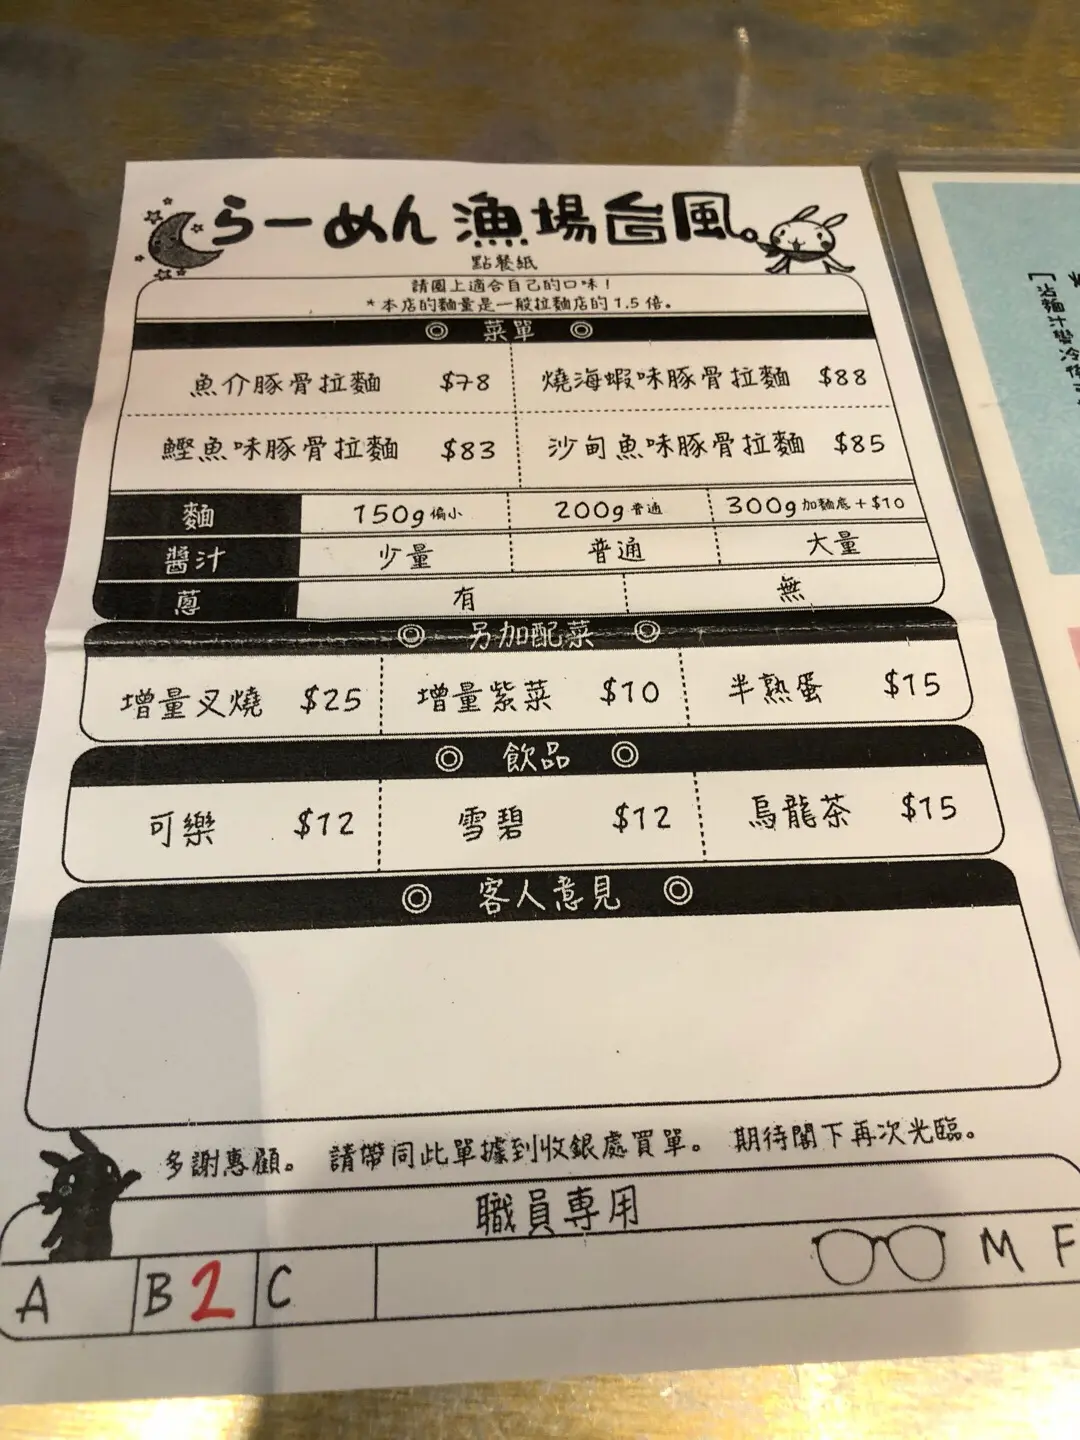 らーめん 漁場台風。
點餐紙
請圈上適合自己的口味！
*本店的麵量是一般拉麵店的1.5倍。
◎ 菜單 ◎
魚介豚骨拉麵 $78 燒海蝦味豚骨拉麵 $88
鰹魚味豚骨拉麵 $83 沙甸魚味豚骨拉麵 $85
麵 150g 偏小 200g 普通 300g 加麵底+$10
醬汁 少量 普通 大量
蔥 有 無
◎ 另加配菜 ◎
增量叉燒 $25 增量紫菜 $10 半熟蛋 $15
◎ 飲品 ◎
可樂 $12 雪碧 $12 烏龍茶 $15
◎ 客人意見 ◎
多謝惠顧。 請帶同此單據到收銀處買單。 期待閣下再次光臨。
職員専用
A B 2 C M F
沾麵汁變冷